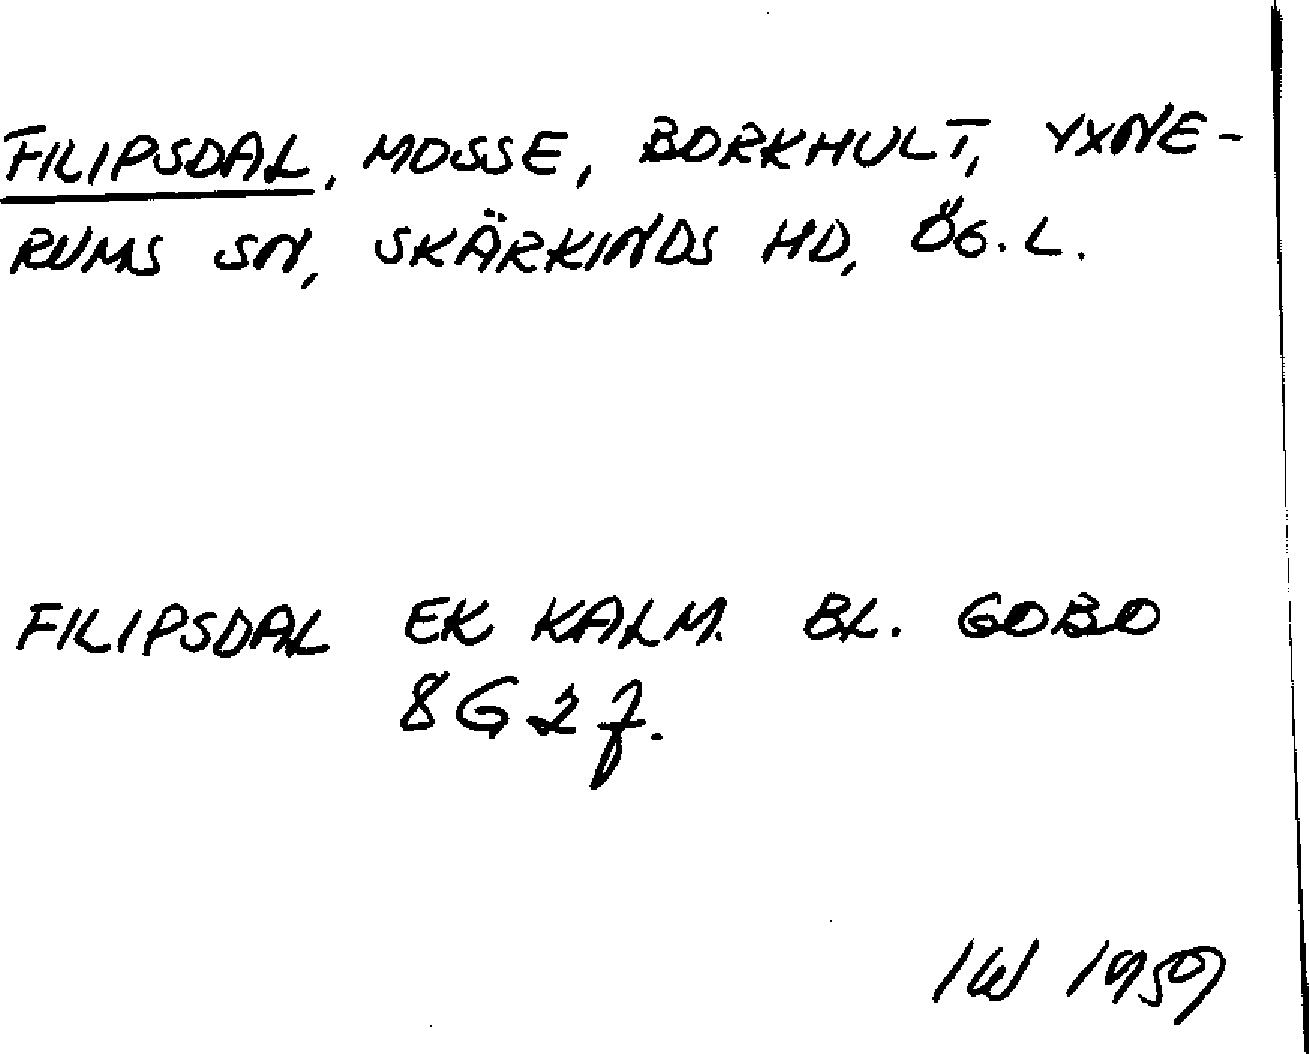 FILIPSDAL, MOSSE, BORKHULT, YXNE-
RUMS SN, SKÄRKINDS HD, ÖG. L.
FILIPSDAL EK KALM. BL. GOBO
8G2f.
IW 1959